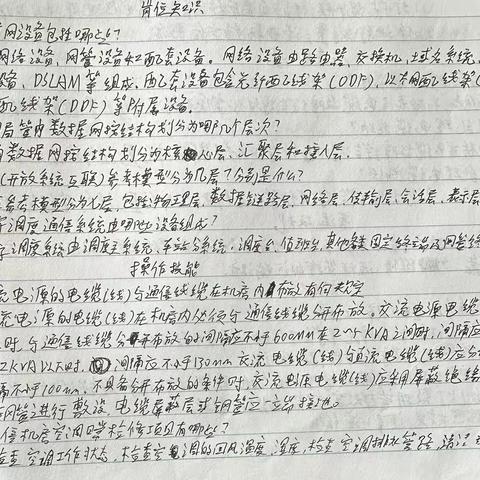 岗位知识
网设备包括哪些?
网络设备、网管设备和配套设备。网络设备由路由器、交换机、域名系统、
设备、DSLAM等组成,配套设备包含光纤配线架(ODF),以太网配线架(
配线架(DDF)等附属设备。
局管内数据网按结构划分为哪几个层次?
数据网按结构划分为核心层、汇聚层和接入层。
(开放系统互联)参考模型分为几层?分别是什么?
参考模型分为七层,包括物理层、数据链路层、网络层、传输层、会话层、表示层、
调度通信系统由哪些设备组成?
调度系统由调度主系统、车站分系统、调度台、值班台、其他各类固定终端及网管终
操作技能
流电源的电缆(线)与通信线缆在机房内布放有何规定
流电源的电缆(线)在机房内处应与通信线缆分开布放。交流电源电缆
时,与通信线缆分开布放的间隔应不小于600mm在2~5KVA之间时,间隔应
2KVA以下时,间隔应不小于130mm交流电缆(线)与直流电缆(线)应分
隔不小于100mm,不具备分开布放的条件时,交流电源电缆(线)应采用屏蔽绝缘
钢管进行敷设,电缆屏蔽层或钢管应一端接地。
信机房空调日常检修项目有哪些?
检查空调工作状态,检查空调的回风温度、湿度,检查空调排水管路清洁